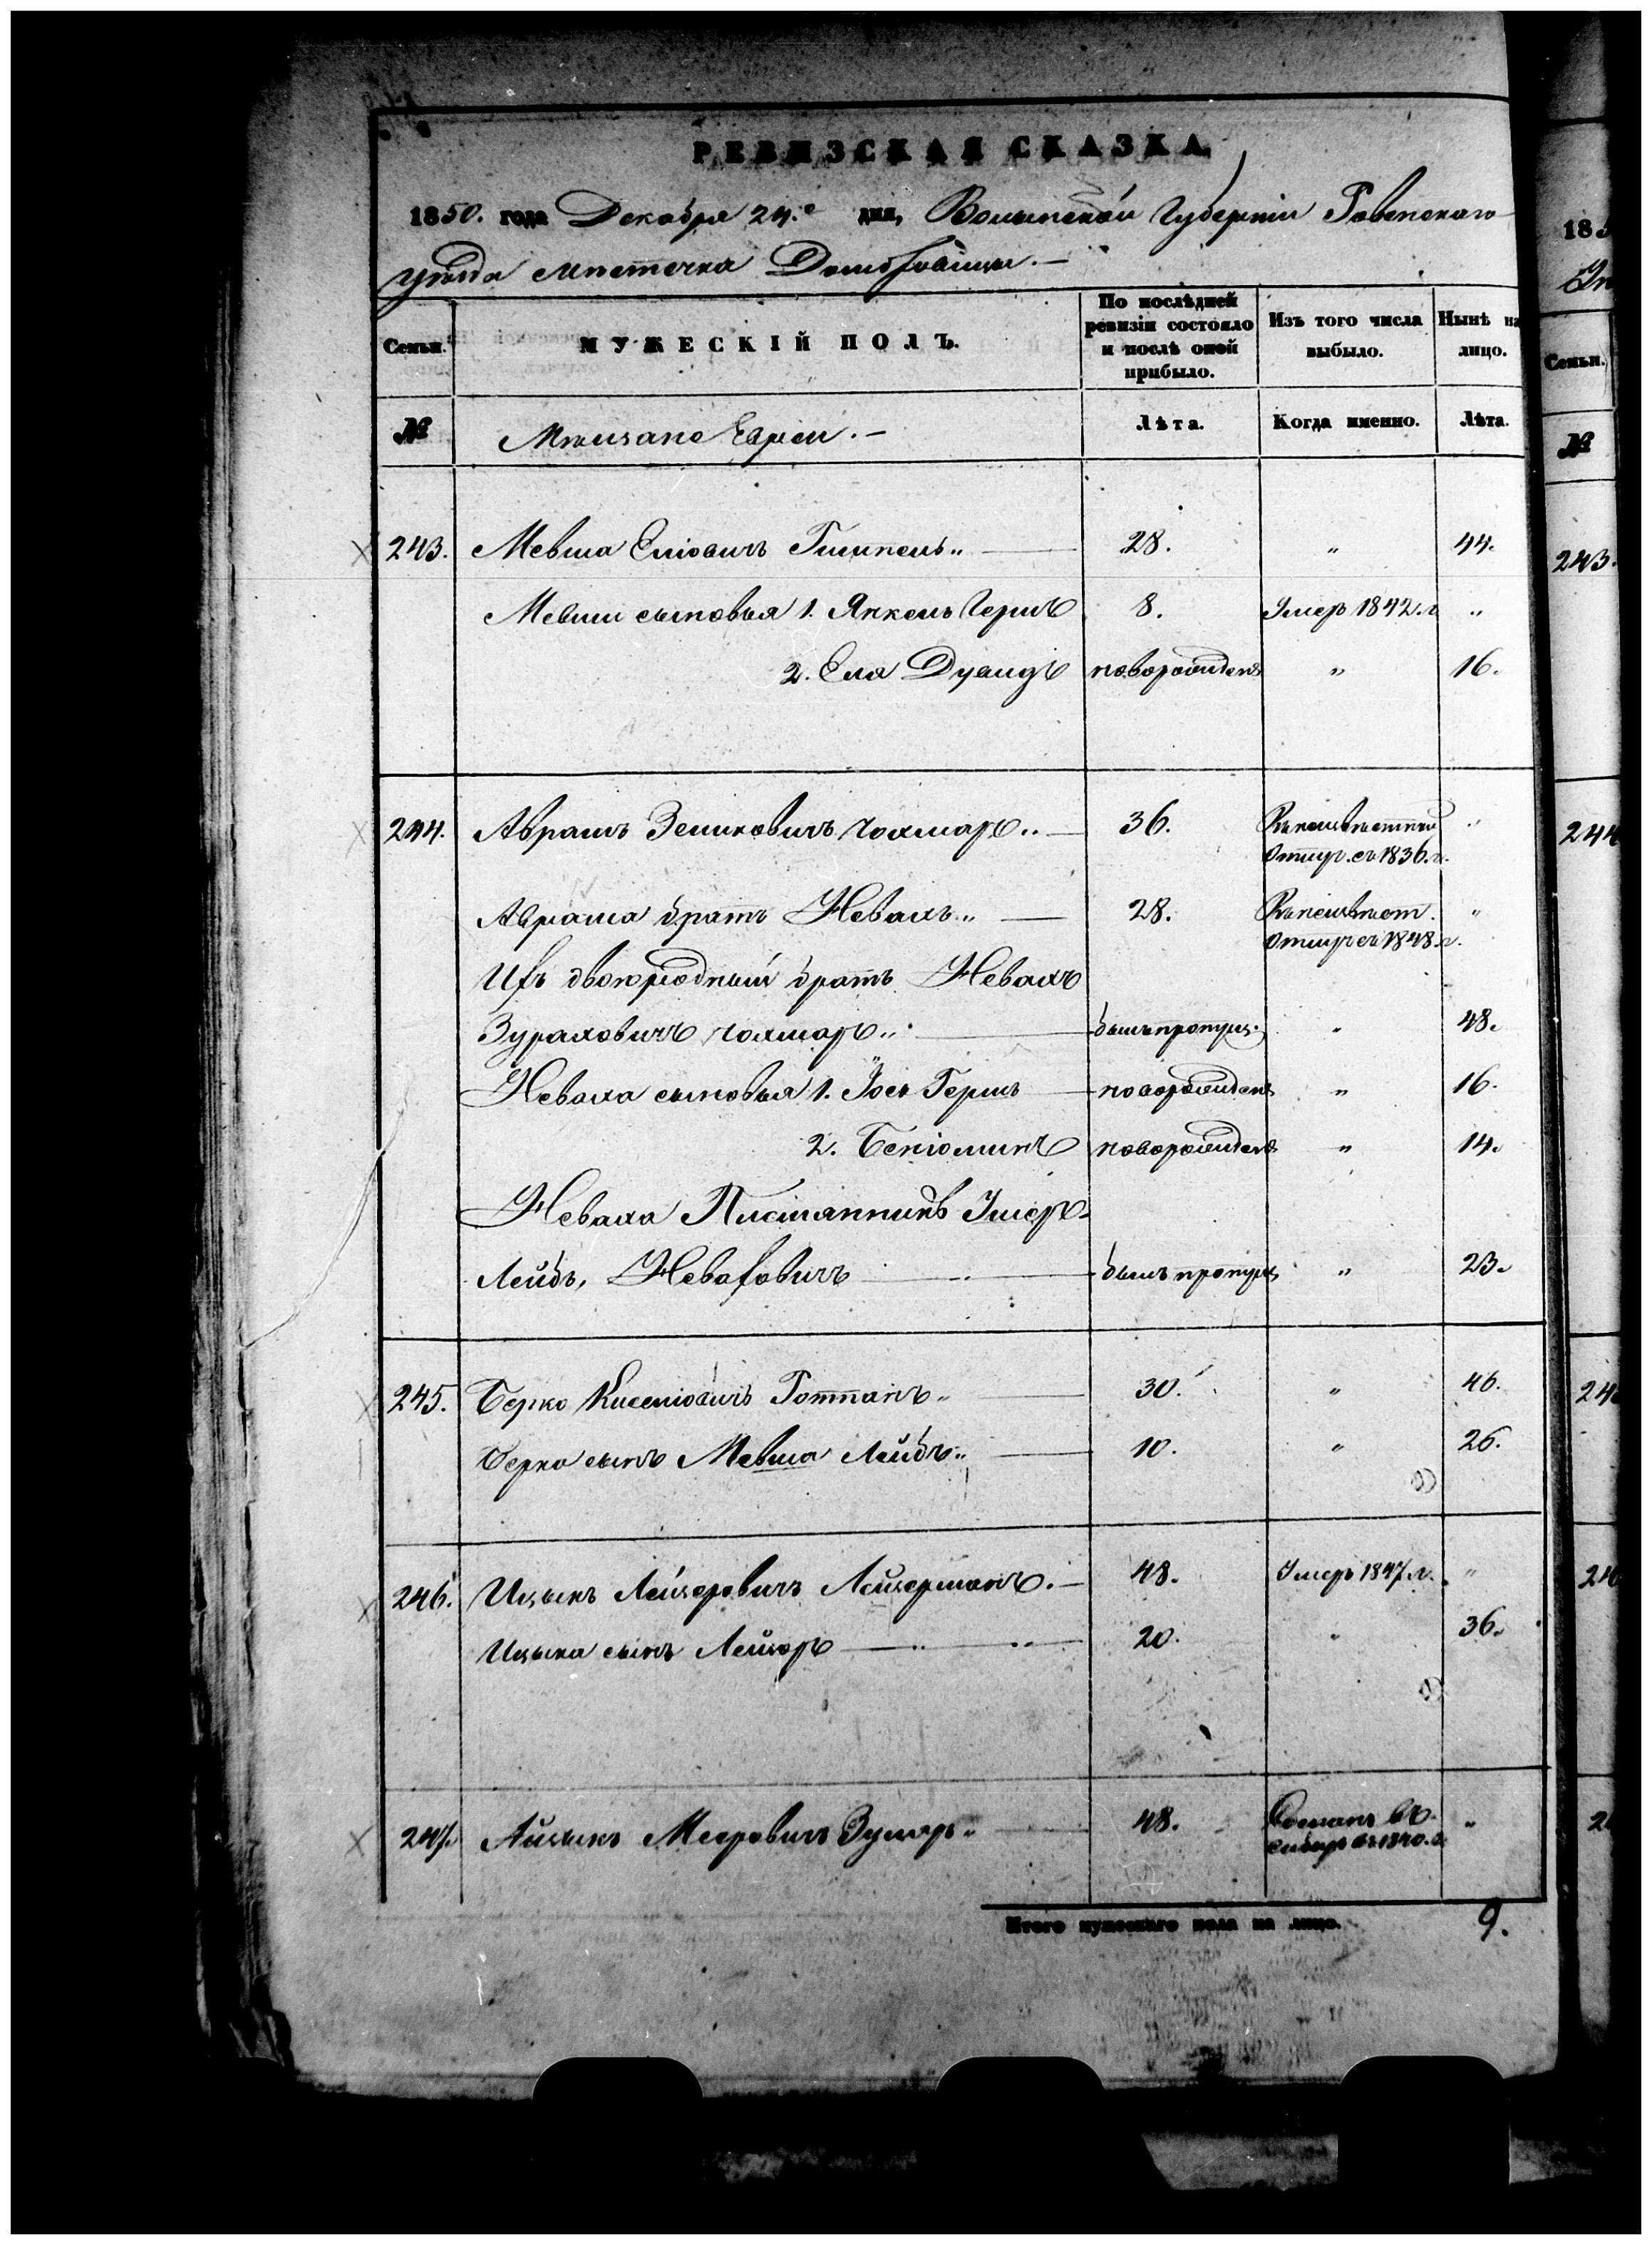 РЕВИЗСКАЯ СКАЗКА
1850. года Декабря 24.го дня, Волынской Губерніи Ровенскаго
уѣзда мѣстечка Домбровицы.—
Семьи. МУЖЕСКІЙ ПОЛЪ. По послѣдней ревизіи состояло и послѣ оной прибыло. Изъ того числа выбыло. Нынѣ на лицо.
№ Мѣщане Евреи.— Лѣта. Когда именно. Лѣта.
243. Мевша Еліовичъ Гимпель„ — 28. „ 44.
Мевши сыновья 1. Янкель Гершъ 8. Умеръ 1842.г „
2. Еля Дувидъ новорожденъ „ 16.
244. Аврамъ Зеликовичъ 36. Въ неизвѣстной „
отлуч. съ 1836.г.
Аврама братъ Невахъ„ — 28. Въ неизвѣст. „
отлуч съ 1848.г.
Ихъ двоюродный братъ Невахъ
был пропущ. „ 48.
Неваха сыновья 1. Іось Гершъ новорожденъ „ 16.
2. Беніоминъ новорожденъ „ 14.
Неваха Племянникъ
Лейбъ, Неваховичъ былъ пропущ „ 23.
245. Берко Киселіовичъ Готманъ„ — 30. „ 46.
Берка сынъ Мевша Лейбъ„ — 10. „ 26.
246. Ицыкъ Лейзеровичъ Лейзерманъ.— 48. Умеръ 1847.г. „
Ицыка сынъ Лейзоръ — 20. „ 36.
247. Айзыкъ Мееровичъ — 48. Сосланъ въ „
сибирь въ 1840.г.
Итого мужескаго пола на лицо. 9.
185
Семьи.
№
243.
244
24
24
2